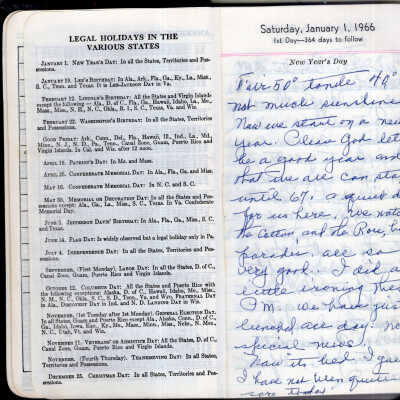 LEGAL HOLIDAYS IN THE
VARIOUS STATES
JANUARY 1. NEW YEAR'S DAY: In all the States, Territories and Pos-
sessions.
JANUARY 19. LEE'S BIRTHDAY: In Ala., Ark., Fla., Ga., Ky., La., Miss.,
S. C., Tenn. and Texas. It is Lee-Jackson Day in Va.
FEBRUARY 12. LINCOLN'S BIRTHDAY: All the States and Virgin Islands
except the following—Ala., D. of C., Fla., Ga., Hawaii, Idaho, La., Me.,
Mass., Miss., N. H., N. C., Okla., R. I., S. C., Texas, Va. and Wis.
FEBRUARY 22. WASHINGTON'S BIRTHDAY: In all the States, Territories
and Possessions.
GOOD FRIDAY: Ark., Conn., Del., Fla., Hawaii, Ill., Ind., La., Md.,
Minn., N. J., N. D., Pa., Tenn., Canal Zone, Guam, Puerto Rico and
Virgin Islands. In Cal. and Wis. after 12 noon.
APRIL 19. PATRIOT'S DAY: In Me. and Mass.
APRIL 26. CONFEDERATE MEMORIAL DAY: In Ala., Fla., Ga. and Miss.
MAY 10. CONFEDERATE MEMORIAL DAY: In N. C. and S. C.
MAY 30. MEMORIAL OR DECORATION DAY: In all the States and Pos-
sessions except: Ala., Ga., La., Miss., S. C., Texas. In Va. Confederate
Memorial Day.
JUNE 3. JEFFERSON DAVIS'S BIRTHDAY: In Ala., Fla., Ga., Miss., S. C.
and Texas.
JUNE 14. FLAG DAY: Is widely observed but a legal holiday only in Pa.
JULY 4. INDEPENDENCE DAY: In all the States, Territories and Pos-
sessions.
SEPTEMBER, (First Monday). LABOR DAY: In all the States, D. of C.,
Canal Zone, Guam, Puerto Rico and Virgin Islands.
OCTOBER 12. COLUMBUS DAY: All the States and Puerto Rico with
the following exceptions: Alaska, D. of C., Hawaii, Idaho, Me., Miss.,
N. M., N. C., Okla., S. C., S. D., Tenn., Va. and Wyo.
NOVEMBER, (1st Tuesday after 1st Monday). GENERAL ELECTION DAY.
NOVEMBER 11. VETERANS' OR ARMISTICE DAY: All the States, D. of C.,
Canal Zone, Guam, Puerto Rico and Virgin Islands.
NOVEMBER, (Fourth Thursday). THANKSGIVING DAY: In all States,
Territories and Possessions.
DECEMBER 25. CHRISTMAS DAY: In all States, Territories and Pos-
sessions.
Saturday, January 1, 1966
1st Day—364 days to follow
New Year's Day
Fair 50° 40°
not much sunshine
Now we start on a new
year. Please God let
be a good year and
that we are
until 67. a quiet d
for us here. We watc
the Cotton and the Rose
parades, all so
very good. I did a
little ironing the
P.M. we have
all day. no
special news.
Now it's bed I gues
I have not been
today